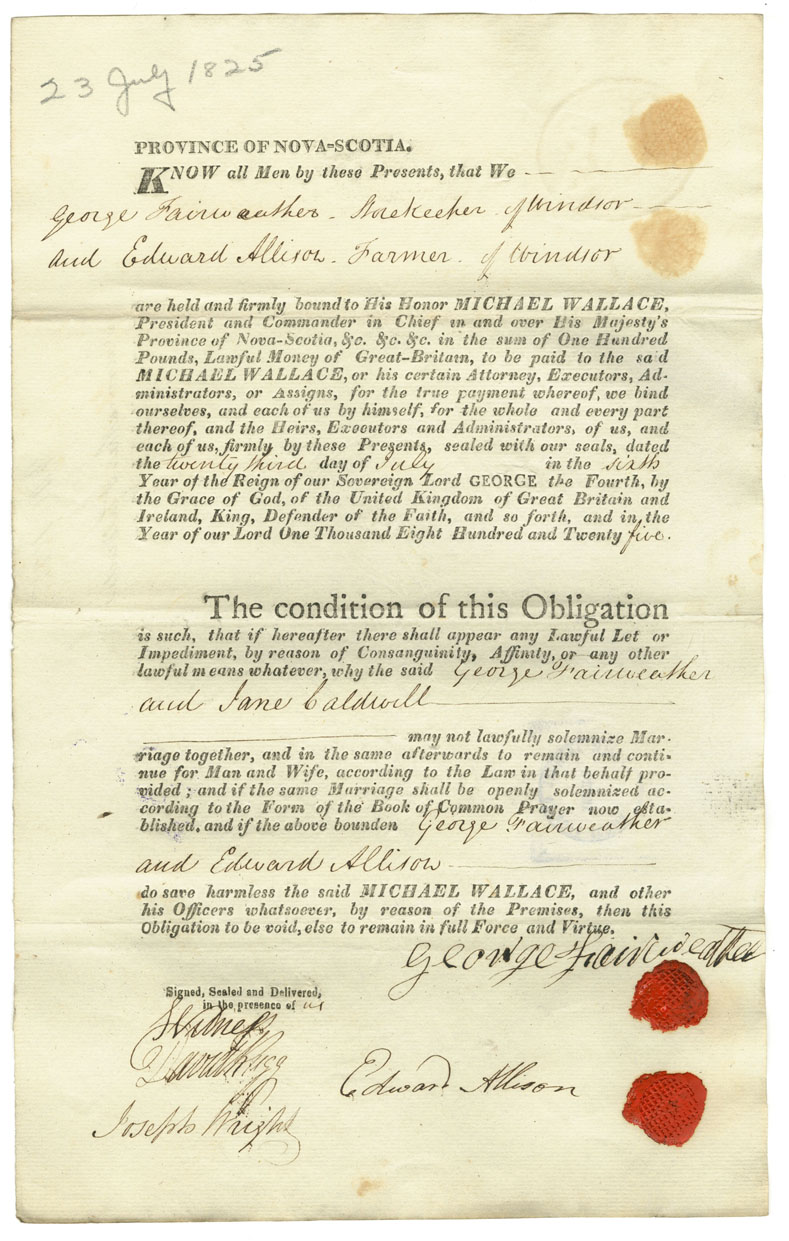 23 July 1825
PROVINCE OF NOVA-SCOTIA.
KNOW all Men by these Presents, that We
George Fairweather. Storekeeper. of Windsor
and Edward Allison. Farmer. of Windsor
are held and firmly bound to His Honor MICHAEL WALLACE,
President and Commander in Chief in and over His Majesty's
Province of Nova-Scotia, &c. &c. &c. in the sum of One Hundred
Pounds, Lawful Money of Great-Britain, to be paid to the said
MICHAEL WALLACE, or his certain Attorney, Executors, Ad-
ministrators, or Assigns, for the true payment whereof, we bind
ourselves, and each of us by himself, for the whole and every part
thereof, and the Heirs, Executors and Administrators, of us, and
each of us, firmly by these Presents, sealed with our seals, dated
the twenty third day of July in the sixth
Year of the Reign of our Sovereign Lord GEORGE the Fourth, by
the Grace of God, of the United Kingdom of Great Britain and
Ireland, King, Defender of the Faith, and so forth, and in the
Year of our Lord One Thousand Eight Hundred and Twenty five.
The condition of this Obligation
is such, that if hereafter there shall appear any Lawful Let or
Impediment, by reason of Consanguinity, Affinity, or any other
lawful means whatever, why the said George Fairweather
and Jane Caldwell
may not lawfully solemnize Mar-
riage together, and in the same afterwards to remain and conti-
nue for Man and Wife, according to the Law in that behalf pro-
vided; and if the same Marriage shall be openly solemnized ac-
cording to the Form of the Book of Common Prayer now esta-
blished, and if the above bounden George Fairweather
and Edward Allison
do save harmless the said MICHAEL WALLACE, and other
his Officers whatsoever, by reason of the Premises, then this
Obligation to be void, else to remain in full Force and Virtue.
George Fairweather
Signed, Sealed and Delivered,
in the presence of us
Witness
David
Edward Allison
Joseph Wright